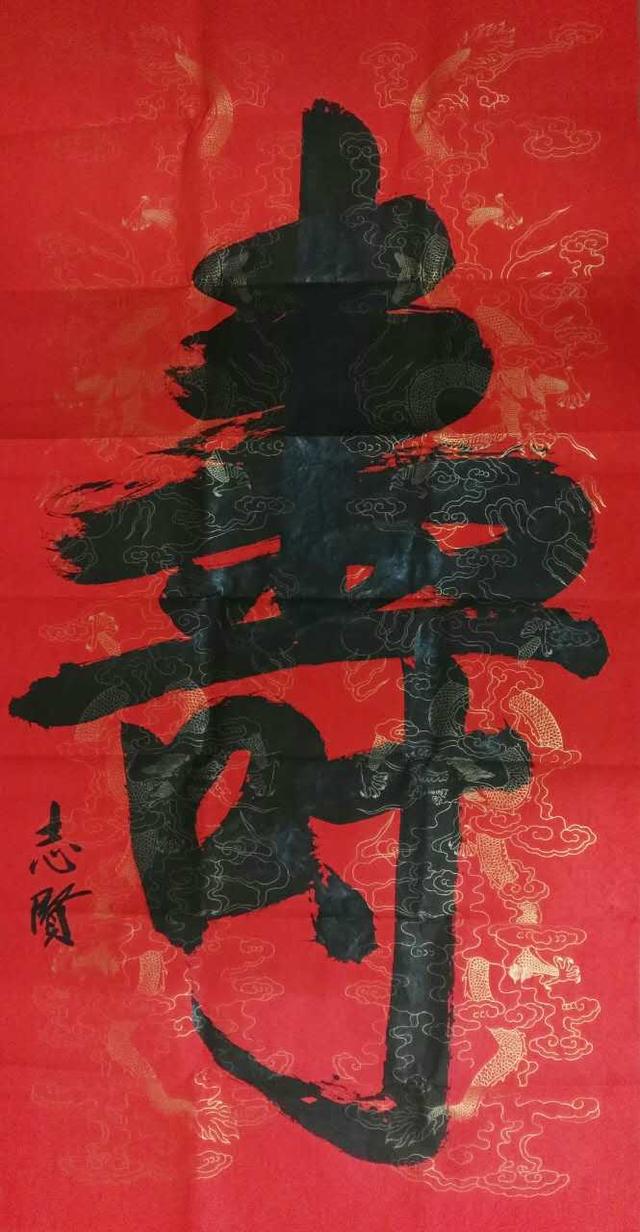 壽
志賢